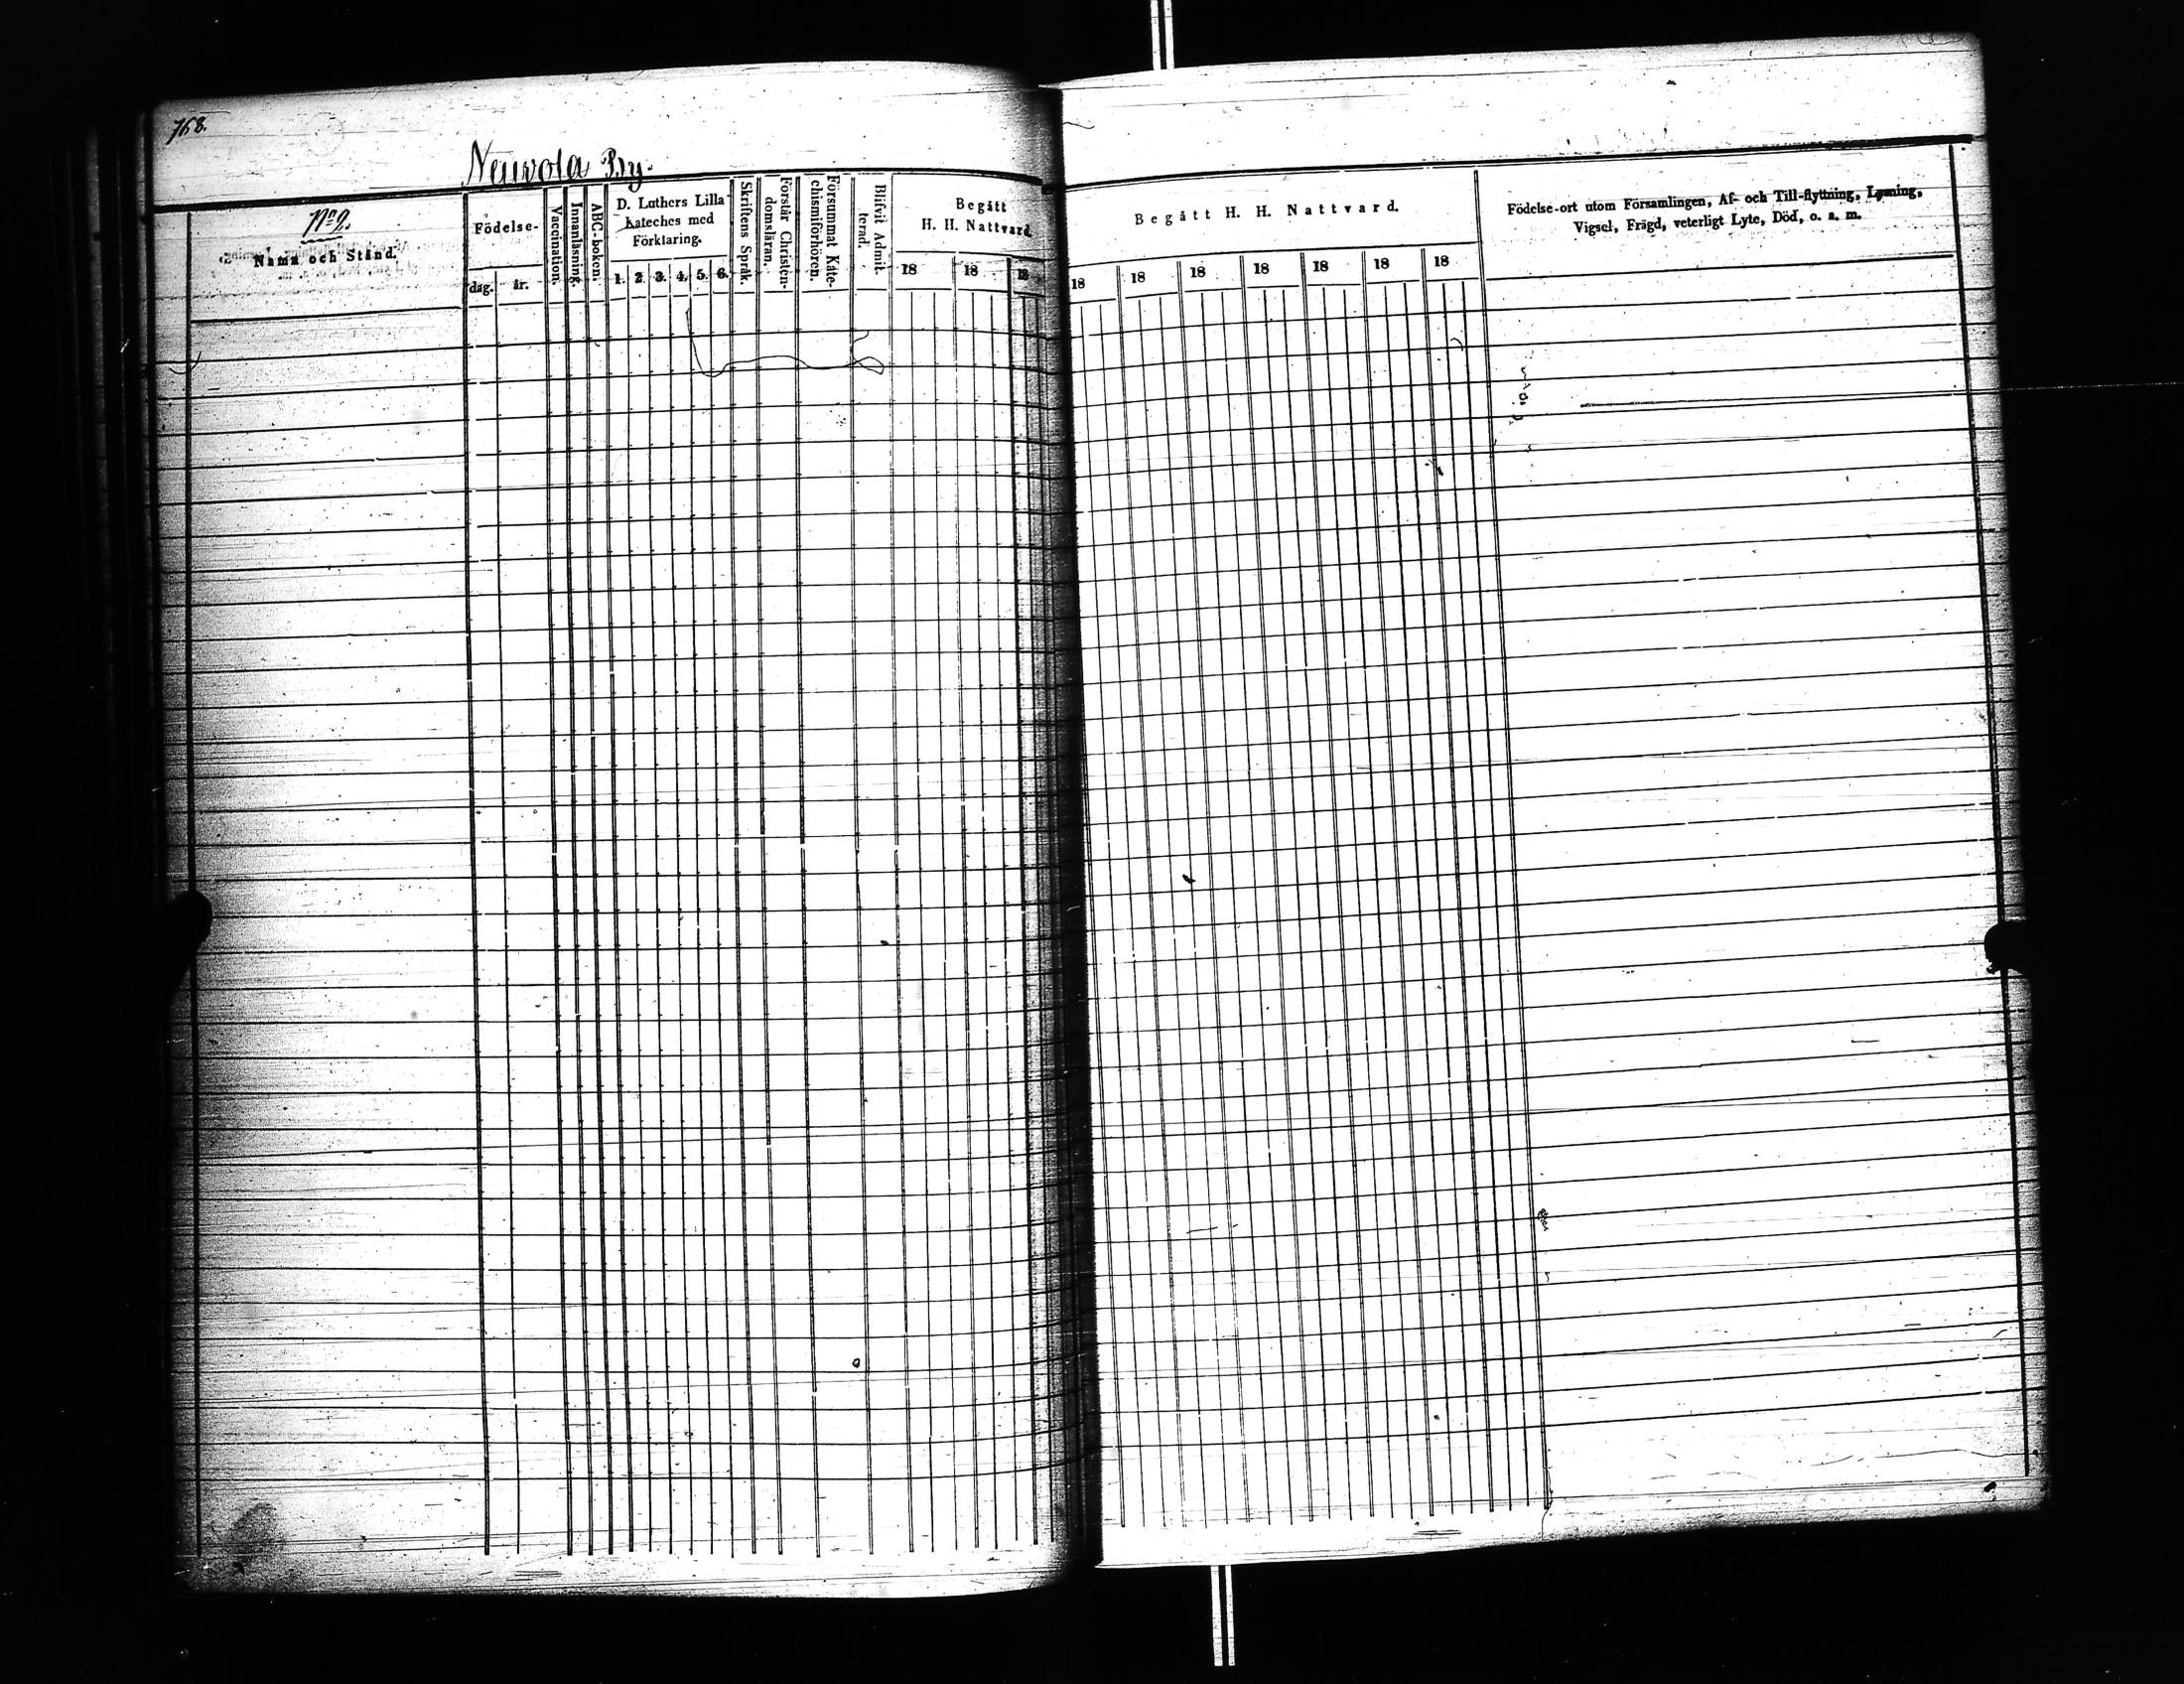 768.
Neuvola By.
No 2.
Namn och Stånd.
Födelse-
dag.
år.
Vaccination.
Innanläsning.
ABC-boken.
D. Luthers Lilla
Kateches med
Förklaring.
1. 2. 3. 4. 5. 6.
Skriftens Språk.
Förstår Christen-
domsläran.
Försummat Kate-
chismiförhören.
Blifvit Admit-
terad.
Begått
H. H. Nattvard.
18 18 18
Begått H. H. Nattvard.
18 18 18 18 18 18 18
Födelse-ort utom Församlingen, Af- och Till-flyttning, Lysning,
Vigsel, Frägd, veterligt Lyte, Död, o. s. m.